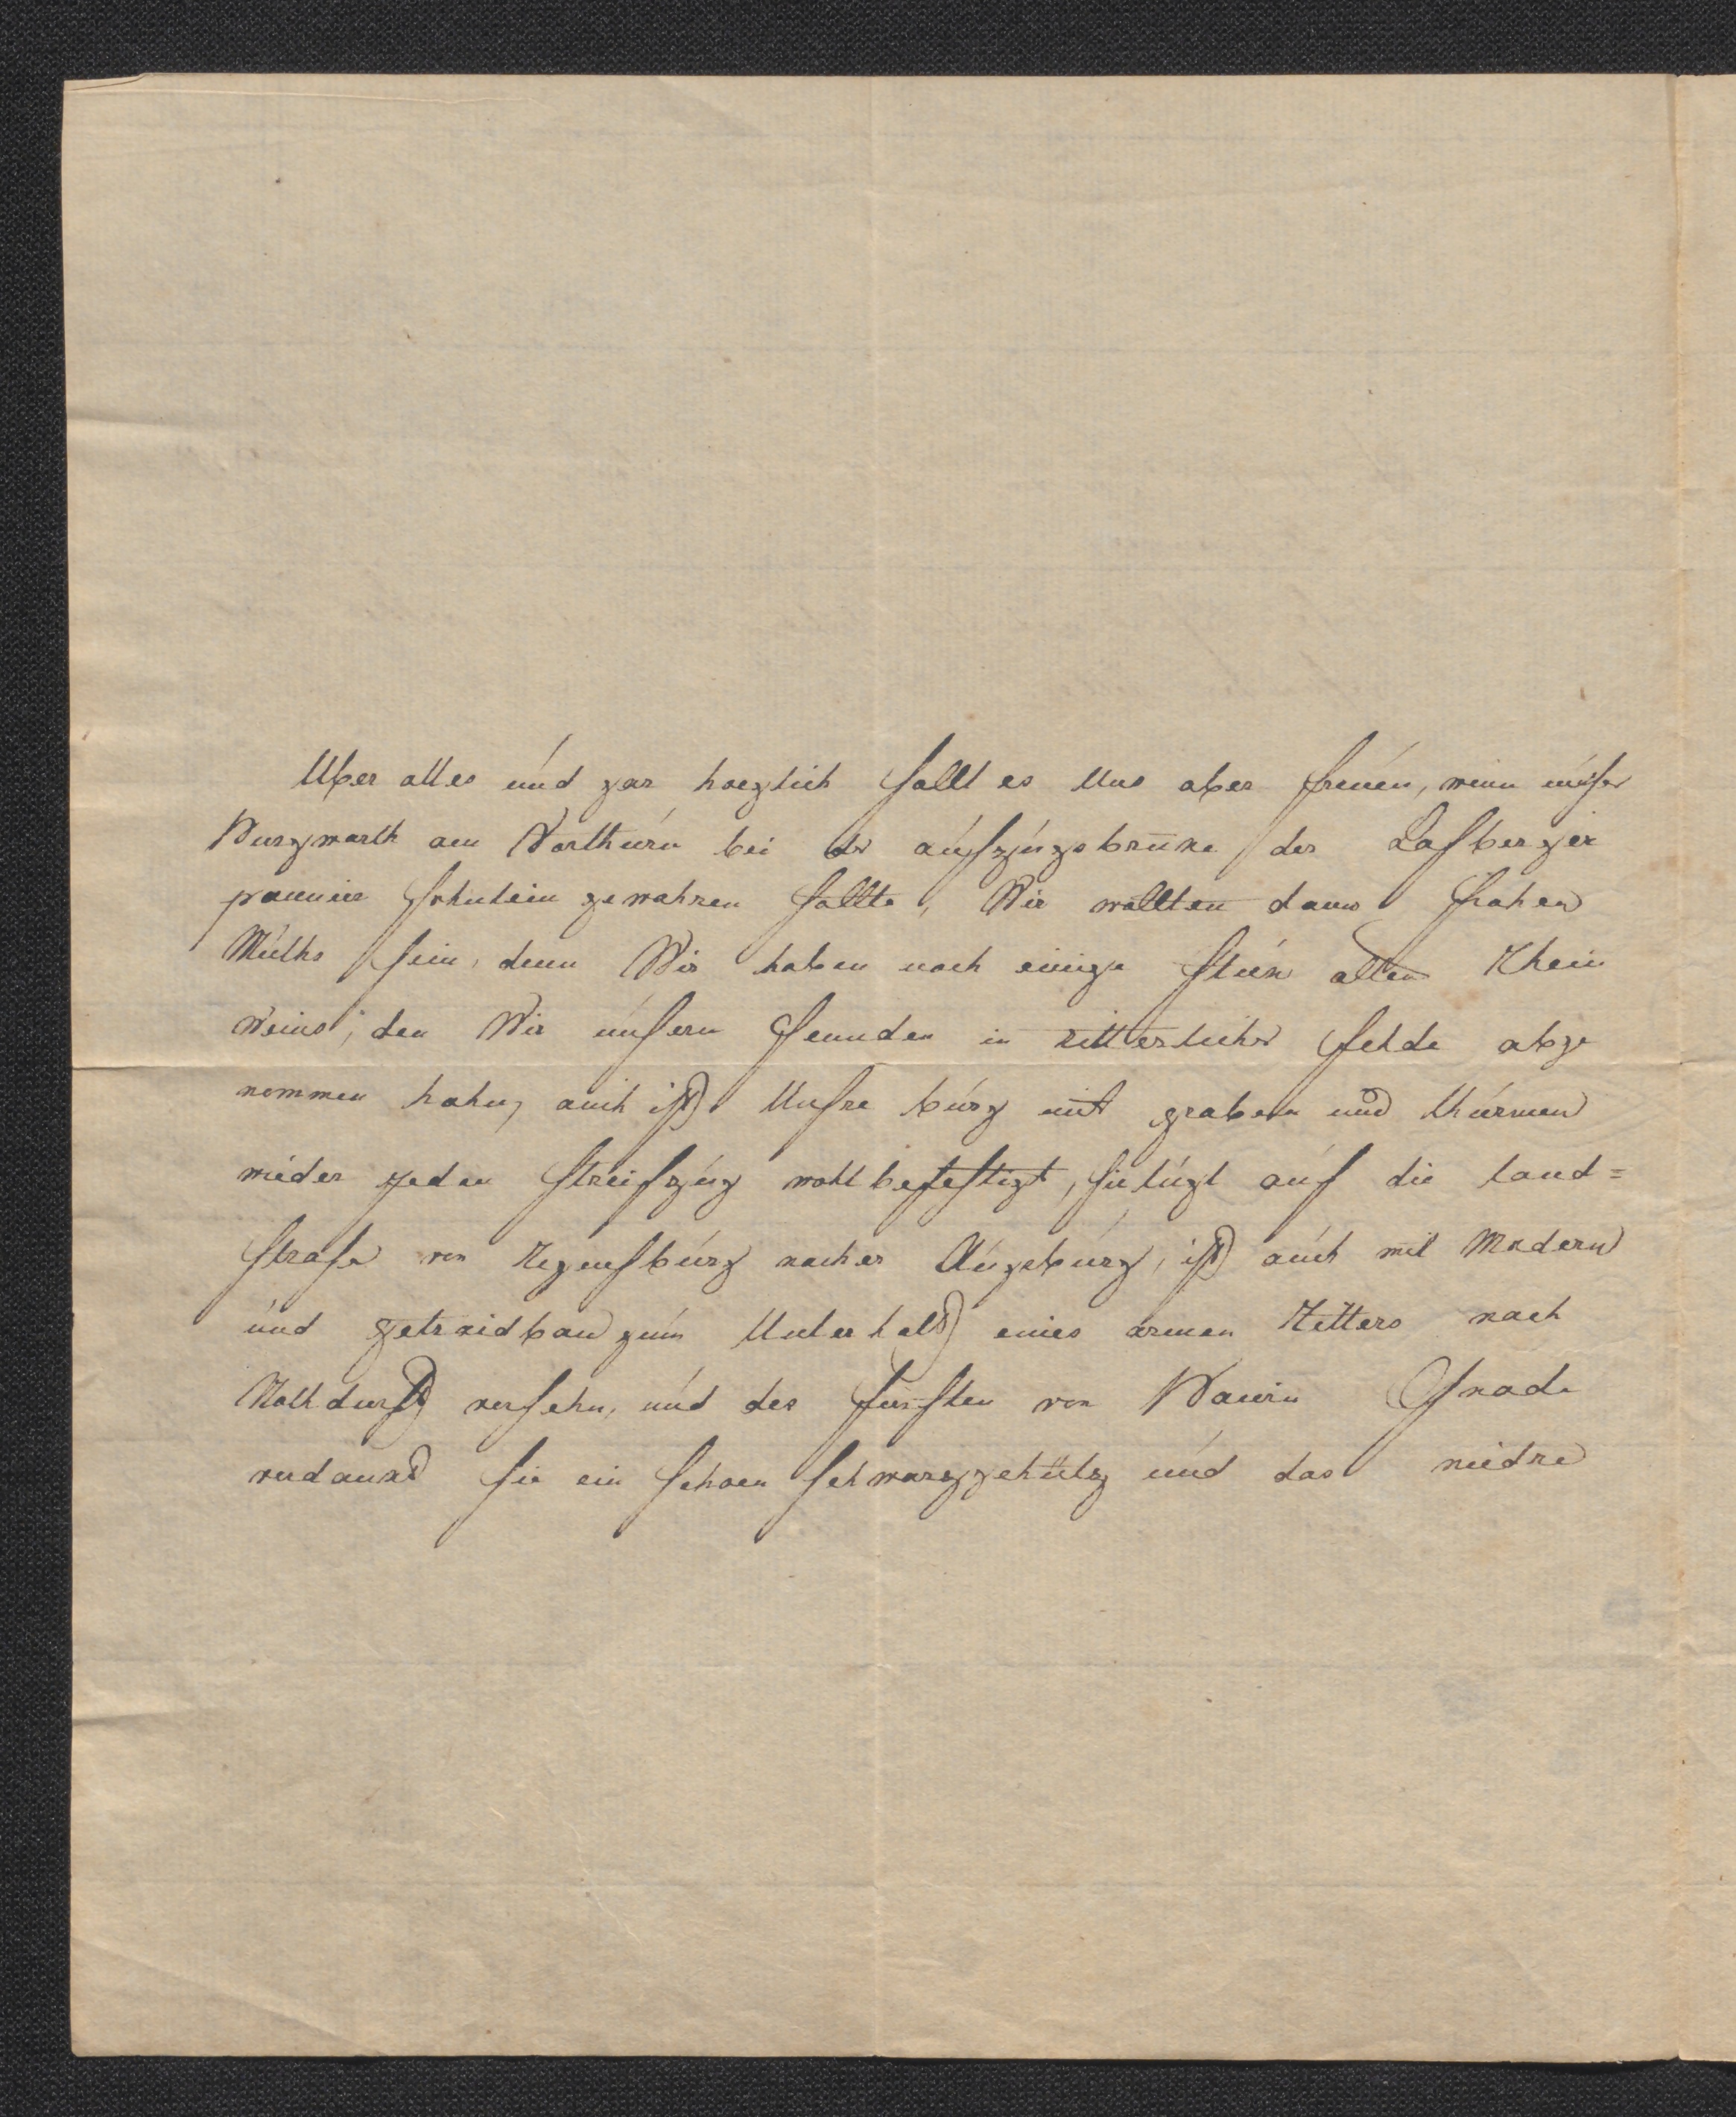 Uber alles und gar hoeglich sollt es Uns aber freuen, wenn unser
Burgwarth am Vorthurn bei der aufzugsbruke der Lasberger
pannier fehnlein gewahren sollte, Wir wollten dann frohen
Muths sein, denn Wir haben noch einige stuk alten Rhein
weins, den Wir unsern feinden in ritterlicher fehde abge
nommen habn, auch ist Unsre burg mit graben und thürmen
wieder jeden streifzug wohl befestigt, sie lugt auf die land=
strase von Regensburg nacher Augsburg, ist auch mit Madern
und getraidbau zum Unterhalt eines armen Ritters nach
Nothdurft versehn, und des fürsten von Baiern Gnade
verdankt sie ein schoen schwarzgehültz und das niedre